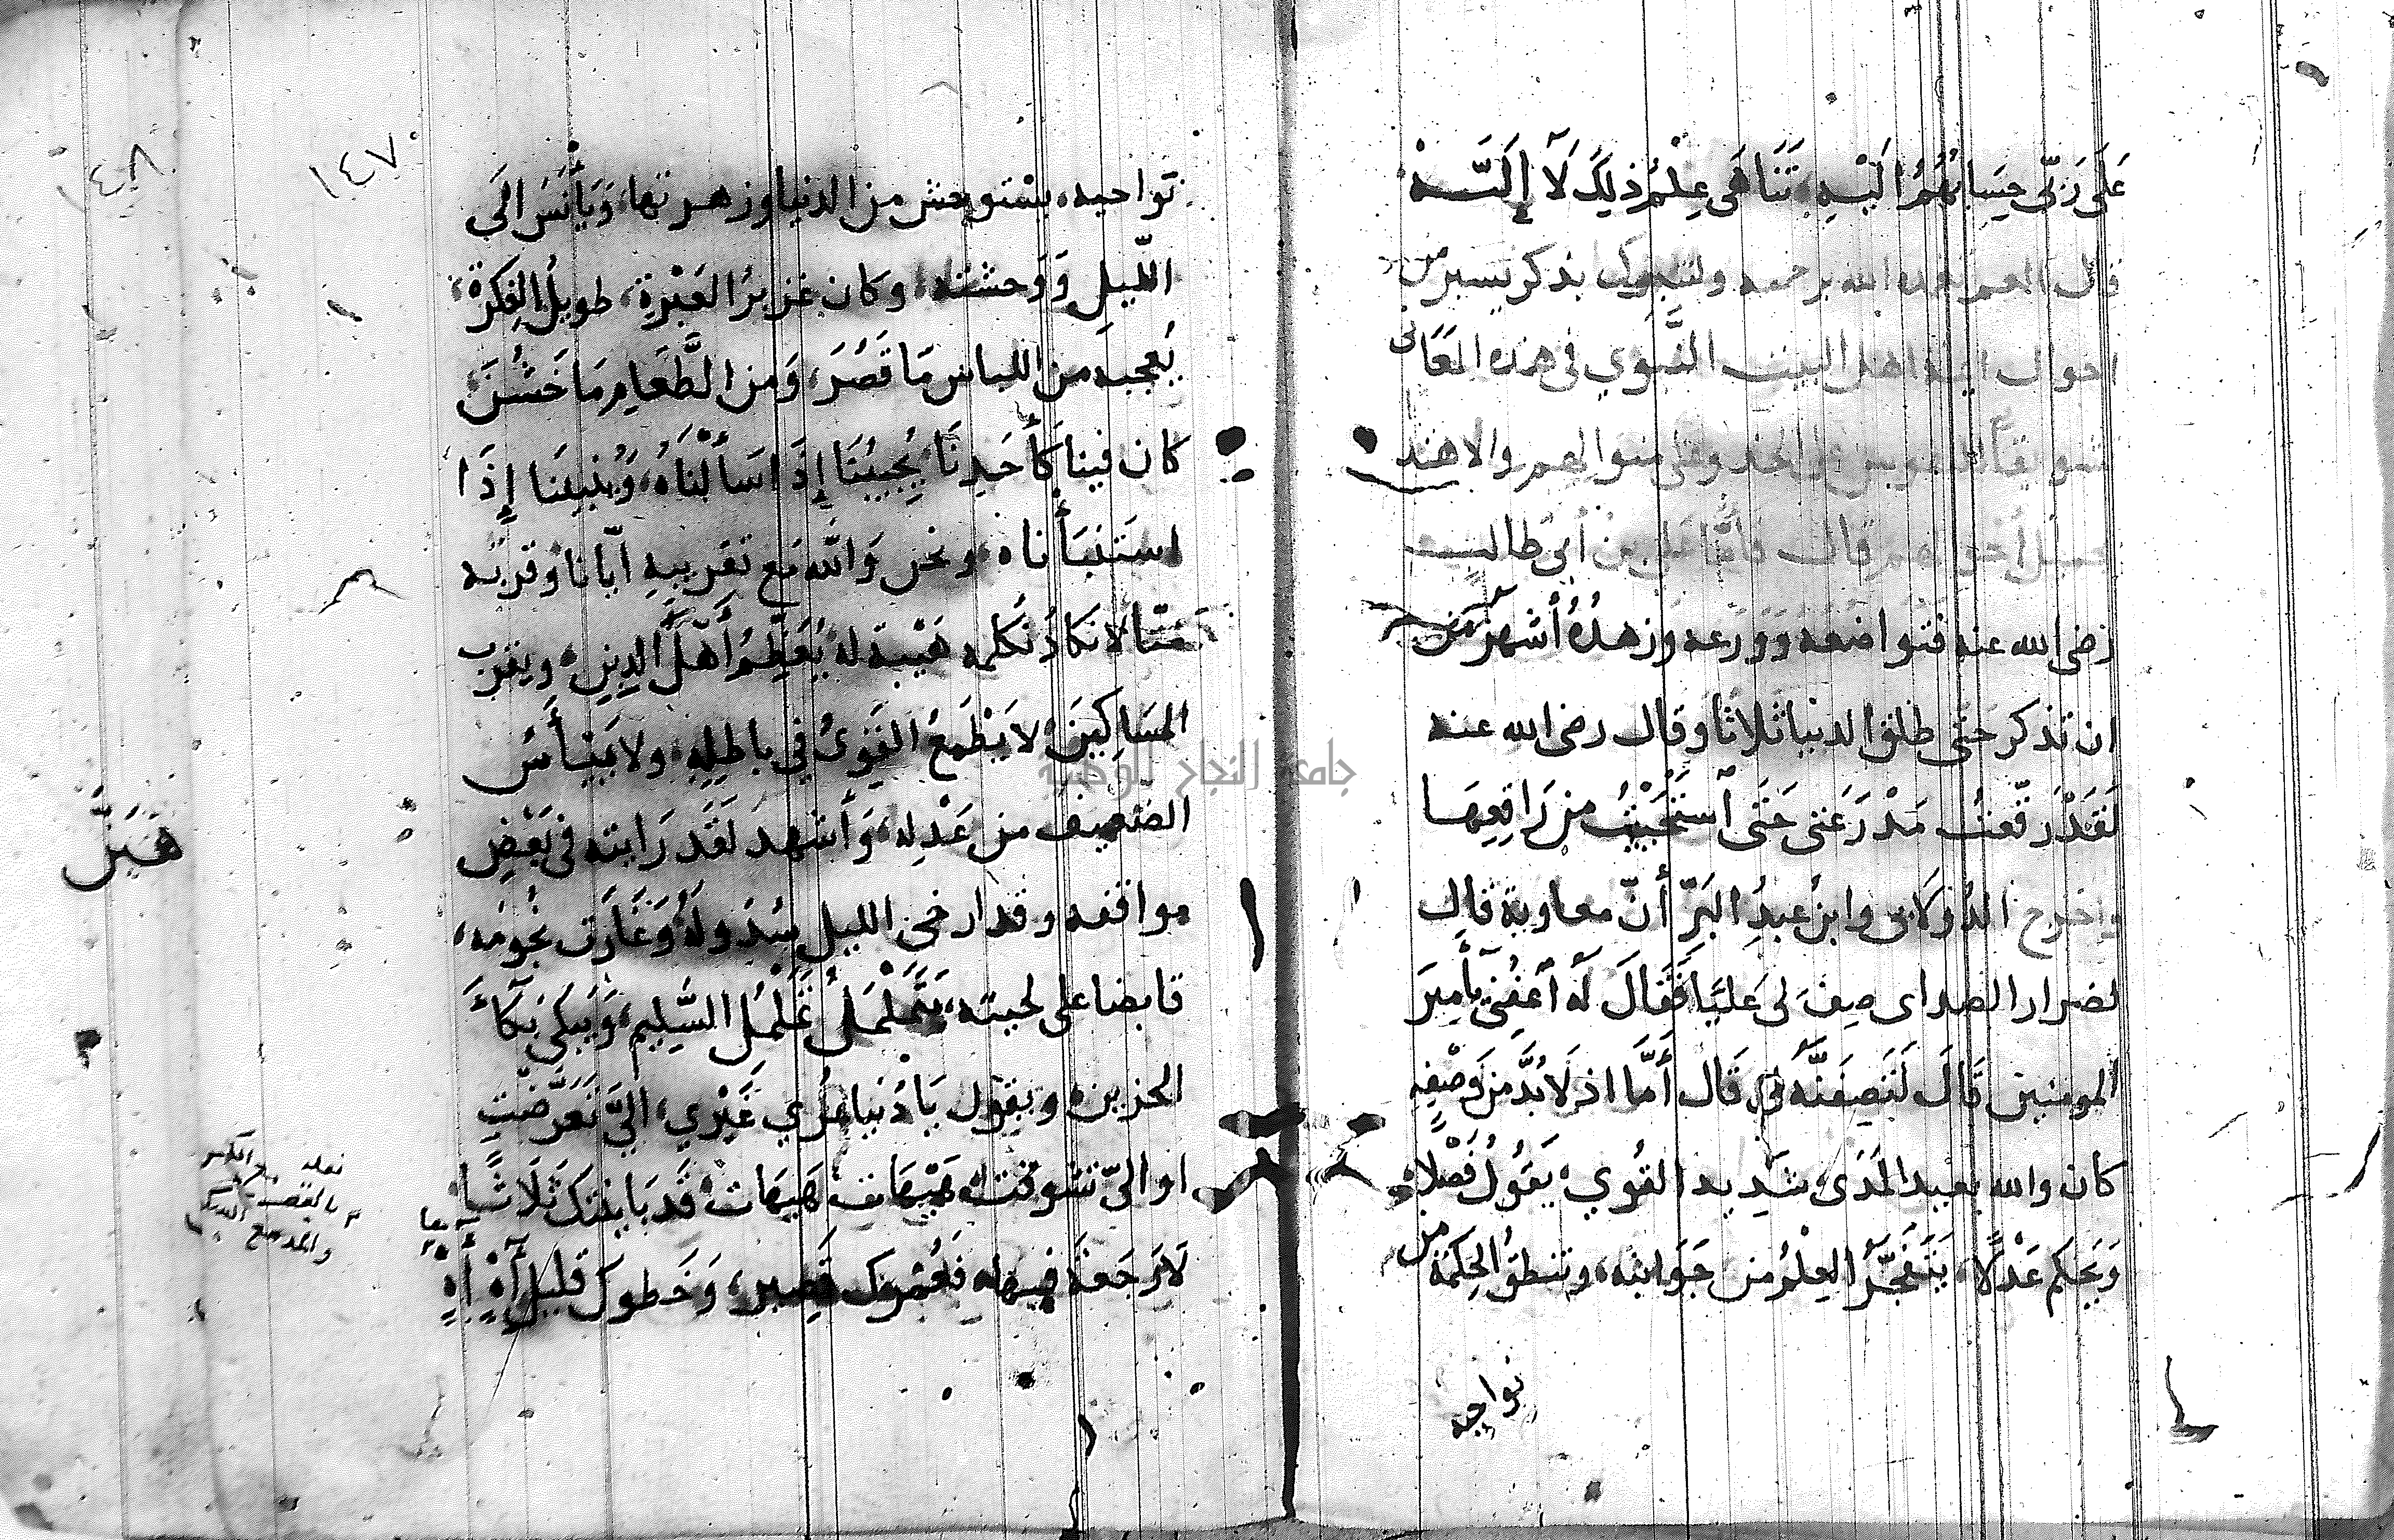 عَلَى رَبّى حِسَابُهُمُ الَيْهِ، تَنَاهَى عِلْمُ ذٰلِكَ لَا إِلَيَّهْ
الله برحمته ولنتبعوك بذكر يسير من
احوال اهل البيت النَّبَوي فى هذه المَعَانى
والاهتدا
قال فأمّا على بن أبى طالب
رضى الله عنه فتواضعه وَوَرَعه وزهدُهُ أشهر مَن
ان تذكر حَتّى طلق الدنيا ثلاثا وقال رضى الله عنه
لَقَدْ رَقّعتُ مَدْرَعَتى حَتَى اسْتَحْيَيْتُ من رَاقِعِهَا
واخرج الدُّولَابى وابنُ عبدِ البَرّ أنّ معاوية قال
لضرار الصداى صِفْ لى عَليًا فَقَالَ لَه أعفِنى يأمِيرَ
المومنين قَالَ لَتَصِفَنَّه لى قَال أمَّا اذ لَا بُدَّ من وَصْفِه
كان والله بعيد المَدَى شَدِيد القُوي يَقُولُ فَصْلًا
وَيَحكم عَدْلًا، يَتَفَجَّرُ العِلْمُ من جَوَانبه، وتنطقُ الحِكمَة من
نواحيه
نواحيه، يستوحش من الدنيا وزهرتها، وَيَأْنَسَ الَى
اللّيلِ وَوَحشته، وَكان غزيرُ العَبْرةِ، طويلُ الفِكرَة،
يُعجبه من اللباس مَا قَصُرَ، وَمن الطَّعَامِ مَا خَشُنَ،
كان فينا كَأَحَدِنَا يُجِيبُنَا إِذَا سَألْنَاهُ، وَيُنبِئنَا إِذَا
استَنبَأناه، ونحن وَاللّه مَع تقريبِهِ ايّانا وقربه
منّا لا نكَادُ نكلمه هَيْبَة له يُعَظِّمُ أَهْلَ الدِينِ، ويقرب
المَسَاكِينَ لا يَطْمَعُ القَوِىُ فِي باطِلِهِ، ولا يَيْأسُ
الضعيف من عَدْلِه، وَأشهد لَقَد رَايته فى بَعْضِ
مواقفه وقد ارخى الليل سُدُولَهُ وَغَارَت نُجُومُه،
قابضا على لحيته، يَتَمَلْمَلُ تَمَلْمُلَ السَّلِيمِ، وَيَبكى بَكَاءَ
الحزين، ويقول يَا دُنيا غُرِّي غَيْرِي، الِيَّ تَعَرَّضْتِ
او اليّ تشوقت هَيْهَات هَيهَات قَد بَايَنْتُك ثلَاثًا
لَا رَجعَةَ فيها، فَعُمْرُك قَصِير، وَخَطرك قليل، آهْ آهْ
١٤٧
١٤٨
جامعة النجاح الوطنية